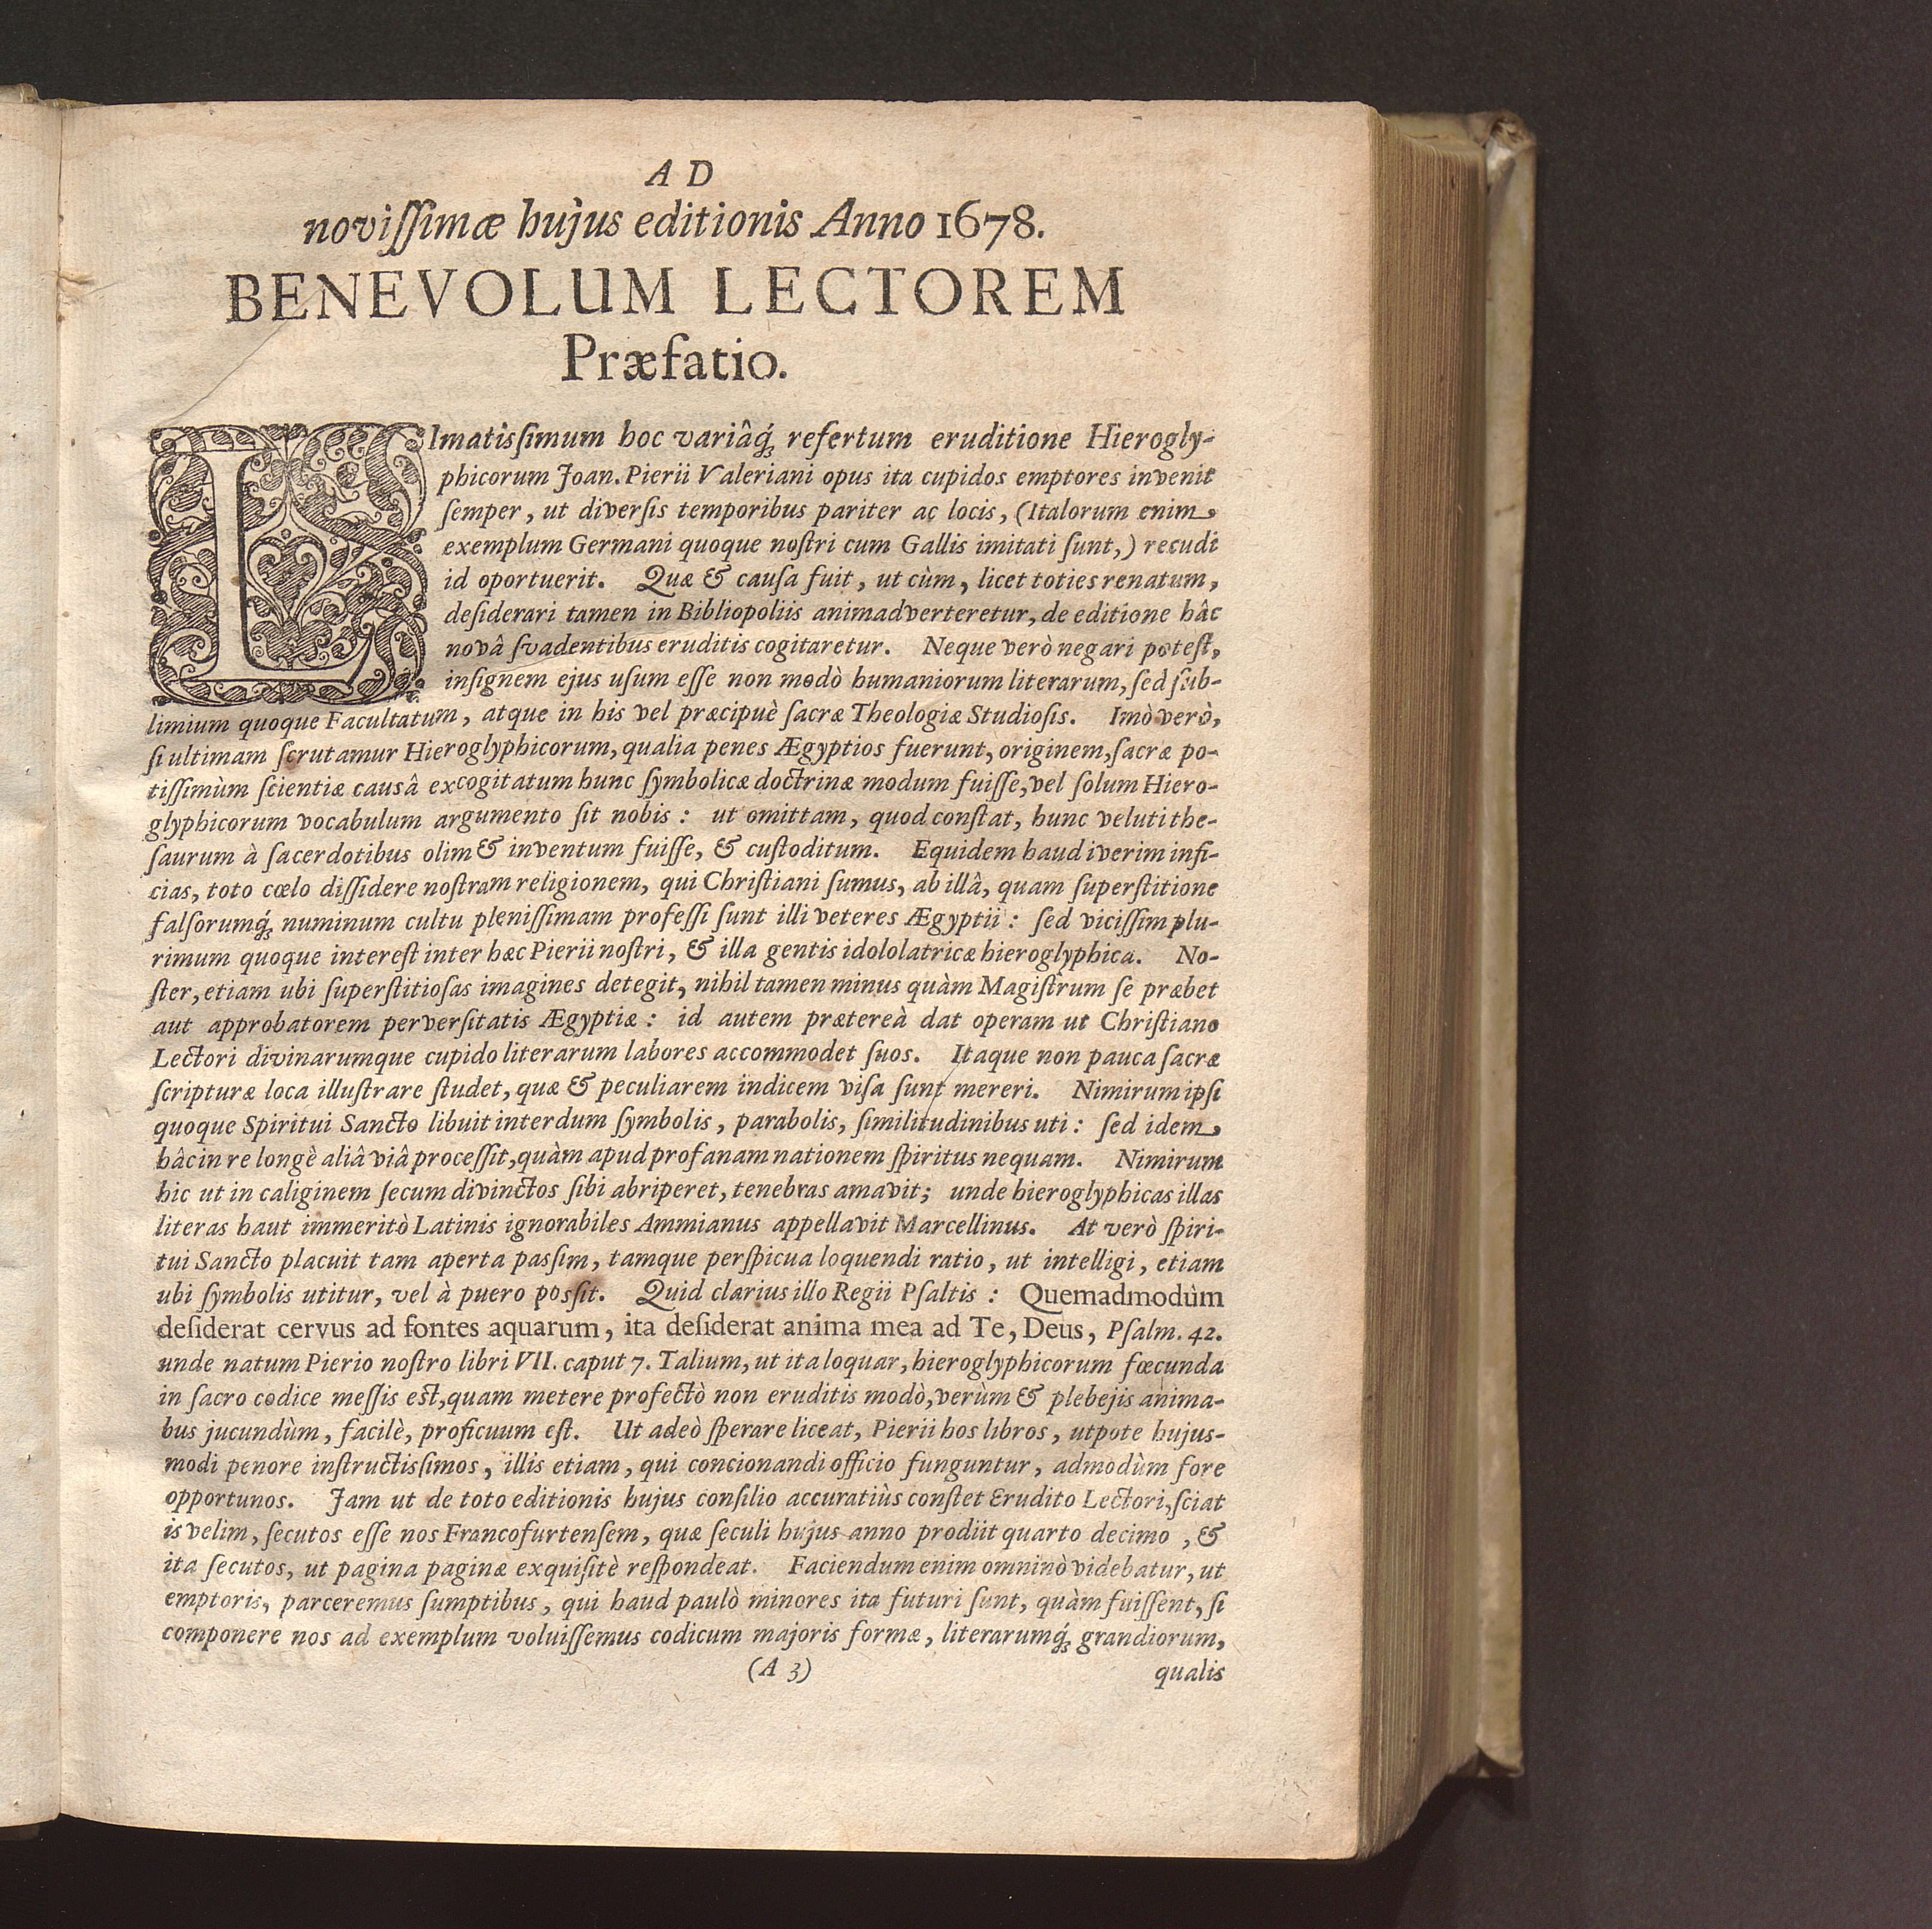 A D
novissimæ hujus editionis Anno 1678.
BENEVOLUM LECTOREM
Præfatio.
LImatissimum hoc variâq́; refertum eruditione Hierogly-
phicorum Joan. Pierii Valeriani opus ita cupidos emptores invenit
semper, ut diversis temporibus pariter ac locis, (Italorum enim
exemplum Germani quoque nostri cum Gallis imitati sunt,) recudi
id oportuerit. Quæ & causa fuit, ut cùm, licet toties renatum,
desiderari tamen in Bibliopoliis animadverteretur, de editione hâc
novâ svadentibus eruditis cogitaretur. Neque verò negari potest,
insignem ejus usum esse non modò humaniorum literarum, sed sub-
limium quoque Facultatum, atque in his vel præcipuè sacræ Theologiæ Studiosis. Imò verò,
si ultimam scrutamur Hieroglyphicorum, qualia penes Ægyptios fuerunt, originem, sacræ po-
tissimùm scientiæ causâ excogitatum hunc symbolicæ doctrinæ modum fuisse, vel solum Hiero-
glyphicorum vocabulum argumento sit nobis: ut omittam, quod constat, hunc veluti the-
saurum à sacerdotibus olim & inventum fuisse, & custoditum. Equidem haud iverim infi-
cias, toto cœlo dissidere nostram religionem, qui Christiani sumus, ab illâ, quam superstitione
falsorumq́; numinum cultu plenissimam professi sunt illi veteres Ægyptii: sed vicissim plu-
rimum quoque interest inter hæc Pierii nostri, & illa gentis idololatricæ hieroglyphica. No-
ster, etiam ubi superstitiosas imagines detegit, nihil tamen minus quàm Magistrum se præbet
aut approbatorem perversitatis Ægyptiæ: id autem prætereà dat operam ut Christiano
Lectori divinarumque cupido literarum labores accommodet suos. Itaque non pauca sacræ
scripturæ loca illustrare studet, quæ & peculiarem indicem visa sunt mereri. Nimirum ipsi
quoque Spiritui Sancto libuit interdum symbolis, parabolis, similitudinibus uti: sed idem
hâc in re longè aliâ viâ processit, quàm apud profanam nationem spiritus nequam. Nimirum
hic ut in caliginem secum divinctos sibi abriperet, tenebras amavit; unde hieroglyphicas illas
literas haut immeritò Latinis ignorabiles Ammianus appellavit Marcellinus. At verò spiri-
tui Sancto placuit tam aperta passim, tamque perspicua loquendi ratio, ut intelligi, etiam
ubi symbolis utitur, vel à puero possit. Quid clarius illo Regii Psaltis: Quemadmodùm
desiderat cervus ad fontes aquarum, ita desiderat anima mea ad Te, Deus, Psalm. 42.
unde natum Pierio nostro libri VII. caput 7. Talium, ut ita loquar, hieroglyphicorum fœcunda
in sacro codice messis est, quam metere profectò non eruditis modò, verùm & plebejis anima-
bus jucundùm, facilè, proficuum est. Ut adeò sperare liceat, Pierii hos libros, utpote hujus-
modi penore instructissimos, illis etiam, qui concionandi officio funguntur, admodùm fore
opportunos. Jam ut de toto editionis hujus consilio accuratiùs constet Erudito Lectori, sciat
is velim, secutos esse nos Francofurtensem, quæ seculi hujus anno prodiit quarto decimo, &
ita secutos, ut pagina paginæ exquisitè respondeat. Faciendum enim omninò videbatur, ut
emptoris, parceremus sumptibus, qui haud paulò minores ita futuri sunt, quàm fuissent, si
componere nos ad exemplum voluissemus codicum majoris formæ, literarumq́; grandiorum,
(A 3)
qualis